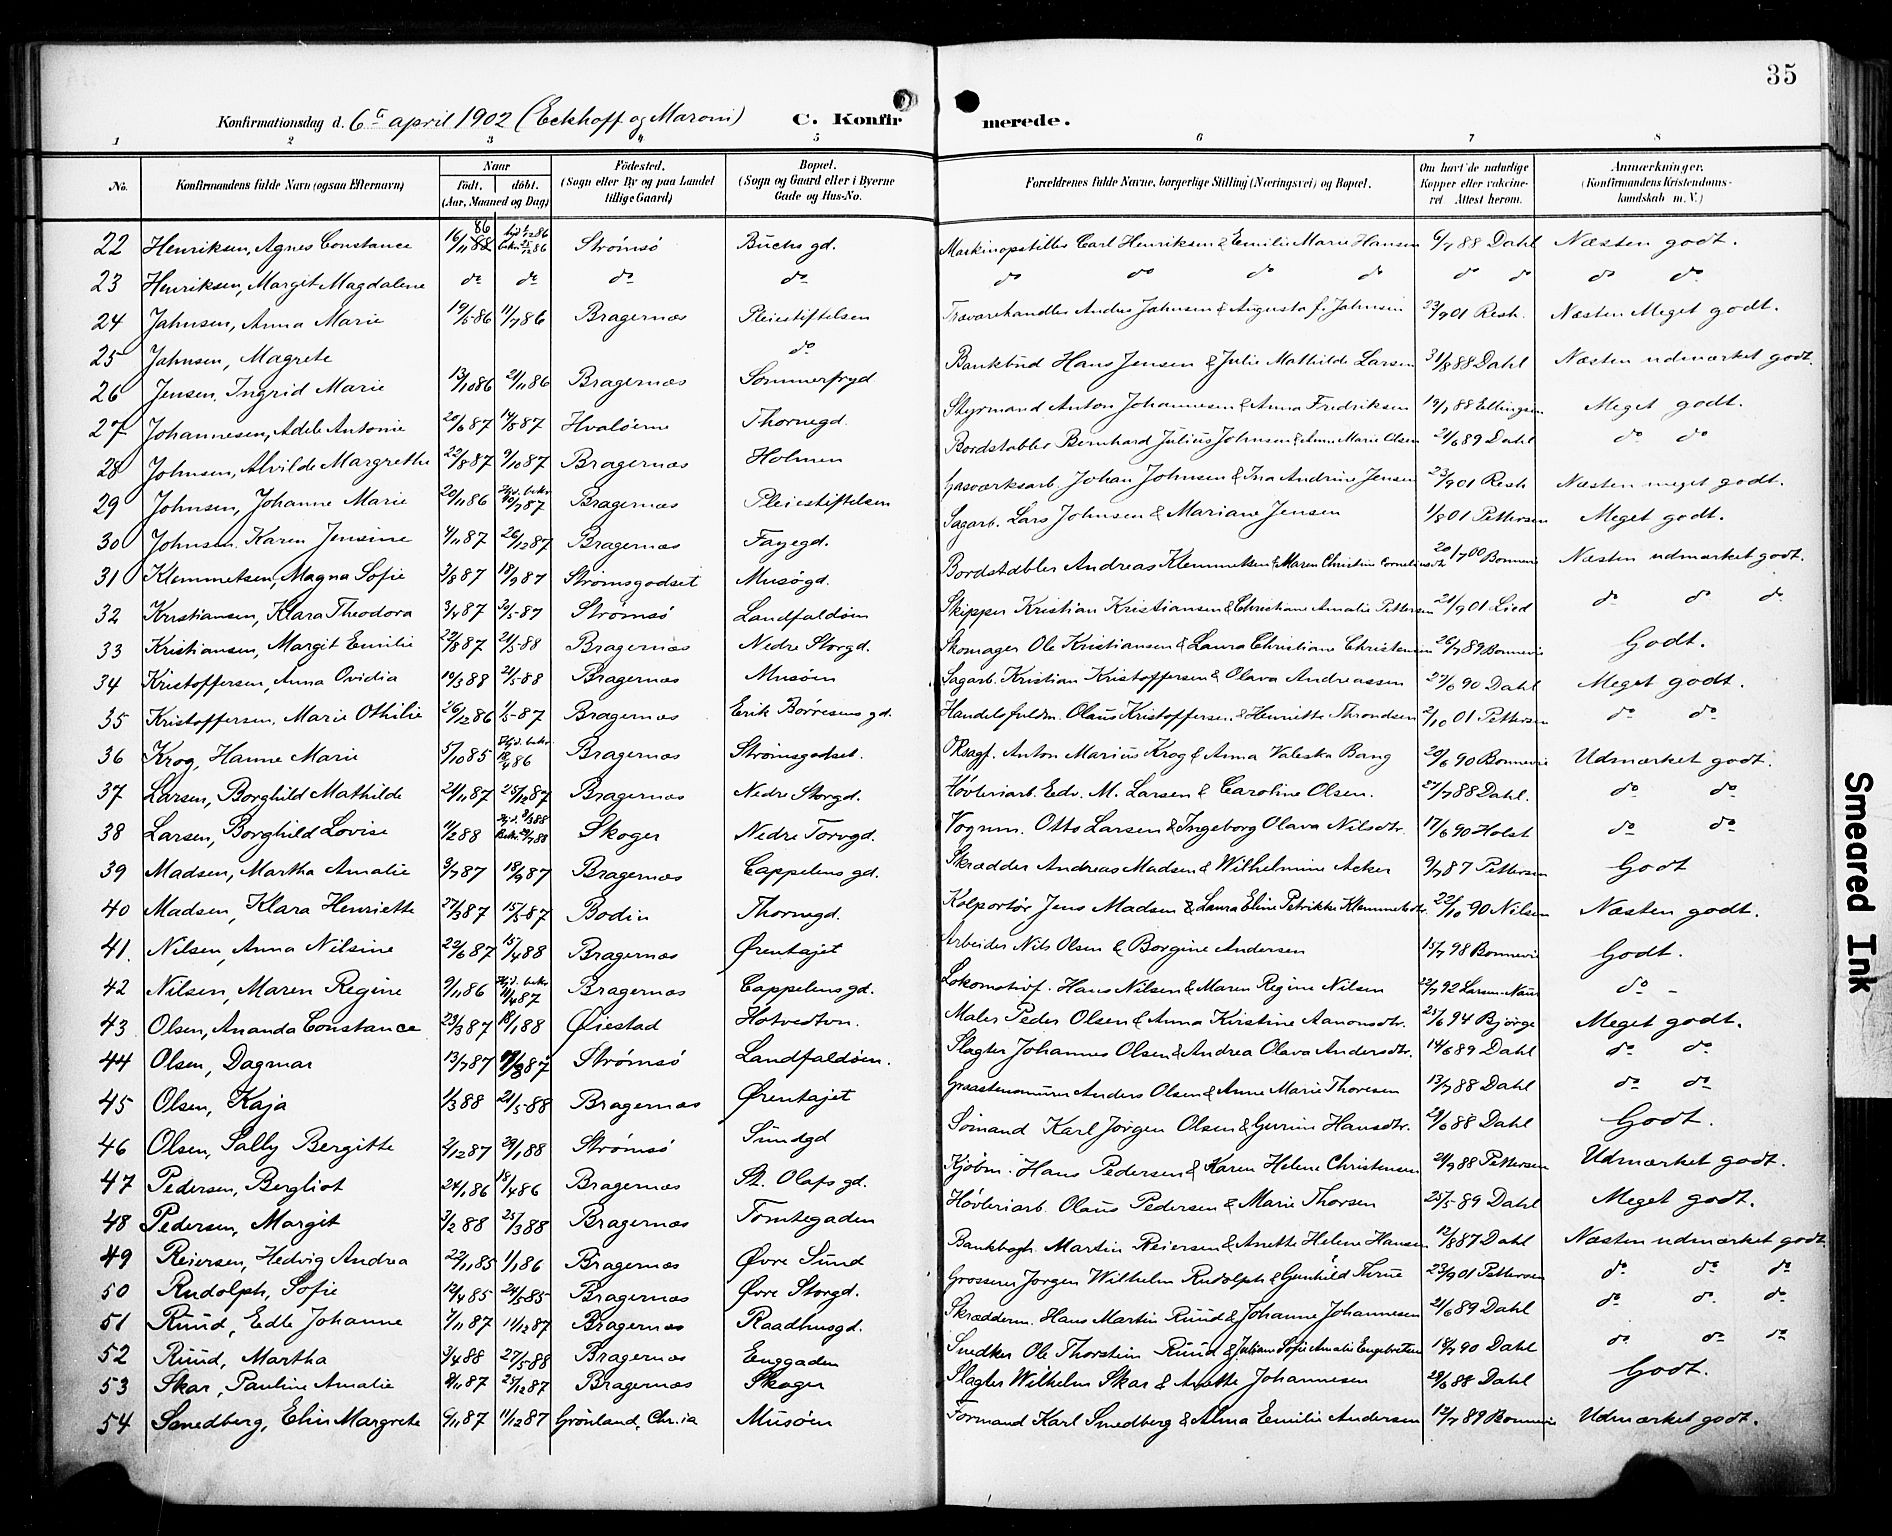 35
Konfirmationsdag d. 6te april 1902 (Eckhoff og Maroni) C. Konfirmerede.
1 2 3 4 5 6 7 8
No. Konfirmandens fulde Navn (ogsaa Efternavn) Naar född. döbt. (Aar, Maaned og Dag) Födested. (Sogn eller By og paa Landet tillige Gaard) Bopæl. (Sogn og Gaard eller i Byerne Gade og Hus-No. Forældrenes fulde Navne, borgerlige Stilling (Næringsvei) og Bopæl. Om havt de naturlige Kopper eller vakcineret Attest herom. Anmærkninger. (Konfirmandens Kristendomskundskab m. V.)
22 Henriksen, Agnes Constance 16/11 86 Strömsö Buchs gd. Maskinopstiller Carl Henriksen & Emilie Marie Hansen 6/7 88 Dahl Næsten godt.
23 Henriksen, Margit Magdalene do do do do do do do do do do do do
24 Jahnsen, Anna Marie 19/5-86 11/7 86 Bragernæs Pleiestiftelsen Trævarehandler Andrus Jahnsen & Augusta f. Jahnsen 23/9 01 Resh. Næsten Meget godt.
25 Jahnsen, Magrete do
26 Jensen, Ingrid Marie 13/10 86 21/11 86 Bragernæs Sommerfryd Bankbud Hans Jensen & Julie Mathilde Larsen 31/8 88 Dahl Næsten udmærket godt.
27 Johannesen, Adele Antonie 20/6 87 14/8 87 Hvalöerne Thornegd. Styrmand Anton Johannesen & Anna Fredriksen 19/1 88 Ellingsen Meget godt.
28 Johnsen, Alvilde Margrethe 22/8 87 9/10 87 Bragernæs Holmen Bordstabler Bernhard Julius Johnsen & Anne Marie Olsen 21/6 89 Dahl do do
29 Johnsen, Johanne Marie 20/11 86 Hjd. bekr. 10/7 87 Bragernæs Pleiestiftelsen Gasværksarb. Johan Johnsen & Ina Andrine Jensen 23/9 01 Resh Næsten meget godt.
30 Johnsen, Karen Jensine 4/11 87 26/12 87 Bragernæs Fayegd. Sagarb. Lars Johnsen & Mariane Jensen 1/8 01 Pettersen Meget godt.
31 Klemmetsen, Magna Sofie 3/8 87 18/9 87 Strömsgodset Musögd. Bordstabler Andreas Klemmetsen & Maren Christine Corneliusdtr. 20/7 00 Bonnevie Næsten udmærket godt.
32 Kristiansen, Klara Theodora 3/4 87 30/5-87 Strömsö Landfaldöen Skipper Kristian Kristiansen & Christiane Amalie Pettersen 21/9 01 Lied do do do
33 Kristiansen, Margit Emilie 22/8 87 21/5-88 Bragernæs Nedre Storgd. Skomager Ole Kristiansen & Laura Christiane Christensen 26/7 89 Bonnevie Godt.
34 Kristoffersen, Anna Ovidia 10/3 88 21/5-88 Bragernæs Musöen Sagarb. Kristian Kristoffersen & Olava Andreassen 27/6 90 Dahl Meget godt.
35 Kristoffersen, Marie Othilie 26/12 86 1/5-87 Bragernæs Erik Börresens gd. Handelsfuldm. Olaus Kristoffersen & Henriette Throndsen 2/10 01 Pettersen do do
36 Krog, Hanne Marie 5/10 85 Hjd. bekr. 18/4 86 Bragernæs Strömsgodset. Anton Marius Krog & Anna Valeska Bang 20/6 90 Bonnevie Udmærket godt.
37 Larsen, Borghild Mathilde 21/11 87 25/12 87 Bragernæs Nedre Storgd. Høvleriarb. Edv. M. Larsen & Caroline Olsen. 27/7 88 Dahl. do do
38 Larsen, Borghild Lovise 11/2 88 Skoger Nedre Torvgd. Vognm. Otto Larsen & Ingeborg Olava Nilsdtr. 17/6 90 Holst do do
39 Madsen, Martha Amalie 3/7 87 18/9 87 Bragernæs Cappelens gd. Skrædder Andreas Madsen & Wilhelmine Acker 9/7 87 Pettersen Godt
40 Madsen, Klara Henriette 27/3 87 15/5-87 Bodin Thornegd. Kolportör Jens Madsen & Laura Eline Petrikke Klemmetsdtr. 22/10 90 Nilsen Næsten godt.
41. Nilsen, Anna Nilsine 22/6 87 15/4 88 Bragernæs Ørentajet Arbeider Nils Olsen & Borgine Andersen 15/7 98 Bonnevie Godt.
42 Nilsen, Maren Regine 9/11 86 Hjd. bekr. 11/4 87 Bragernæs Cappelens gd. Lokomotivf. Hans Nilsen & Maren Regine Nilsen 22/7 92 Larsen-Naur do -
43 Olsen, Ananda Constance 23/3 87 18/1 88 Øiestad Hotvedtvn. Maler Peder Olsen & Anna Kristine Aanonsdtr. 25/6 94 Bjørge Meget godt.
44 Olsen, Dagmar 13/7 87 Strömsö Landfaldöen. Slagter Johannes Olsen & Andrea Olava Andersdtr. 14/6 89 Dahl do do
45 Olsen, Kaja 1/3 88 21/5-88 Bragernæs Ørentajet Graastensmurer Anders Olsen & Anne Marie Thoresen 13/7 88 Dahl do do
46 Olsen, Sally Bergitte 2/12 87 29/1 88 Strömsö Sundgd Sömand Karl Jörgen Olsen & Gurine Hansdtr. 29/6 88 Dahl Godt.
47 Pedersen, Bergliot 24/1 86 18/4 86 Bragernæs St. Olafs gd. Kjöbm. Hans Pedersen & Karen Helene Christensen 21/9 88 Pettersen Udmærket godt.
48 Pedersen, Margit 3/2 88 25/3 88 Bragernæs Tomtegaden Høvleriarb. Olaus Pedersen & Marie Thorsen 25/5-89 Dahl Meget godt.
49 Reiersen, Hedvig Andrea 22/11 85 1/1 86 Bragernæs Øvre Sund Bankbogh. Martin Reiersen & Anette Helene Hansen 12/8 87 Dahl Næsten udmærket godt.
50 Rudolph, Sofie 12/4 85 24/5 85 Bragernæs Øvre Storgd. Grosserer Jörgen Wilhelm Rudolph & Gunhild Thrue 23/9 01 Pettersen do do do
51 Ruud, Edle Johanne 7/11 87 11/12 87 Bragernæs Raadhusgd. Skrædderm. Hans Martin Ruud & Johanne Johannesen 21/6 89 Dahl do do. do
52 Ruud, Martha 3/4 88 27/5-88 Bragernæs Enggaden Snedker Ole Thorstein Ruud & Juliane Sofie Amalie Engebretsen 18/7 90 Dahl do do do
53 Skar, Pauline Amalie 8/11 87 25/12 87 Bragernæs Skoger Slagter Wilhelm Skar & Anette Johannesen 29/6 88 Dahl Godt.
54 Smedberg, Elin Margrete 6/11 87 11/12 87 Grönland, Chr.ia Musöen Formand Karl Smedberg & Alma Emilie Andersen 12/7 89 Bonnevie Udmærket godt.
Smeared Ink